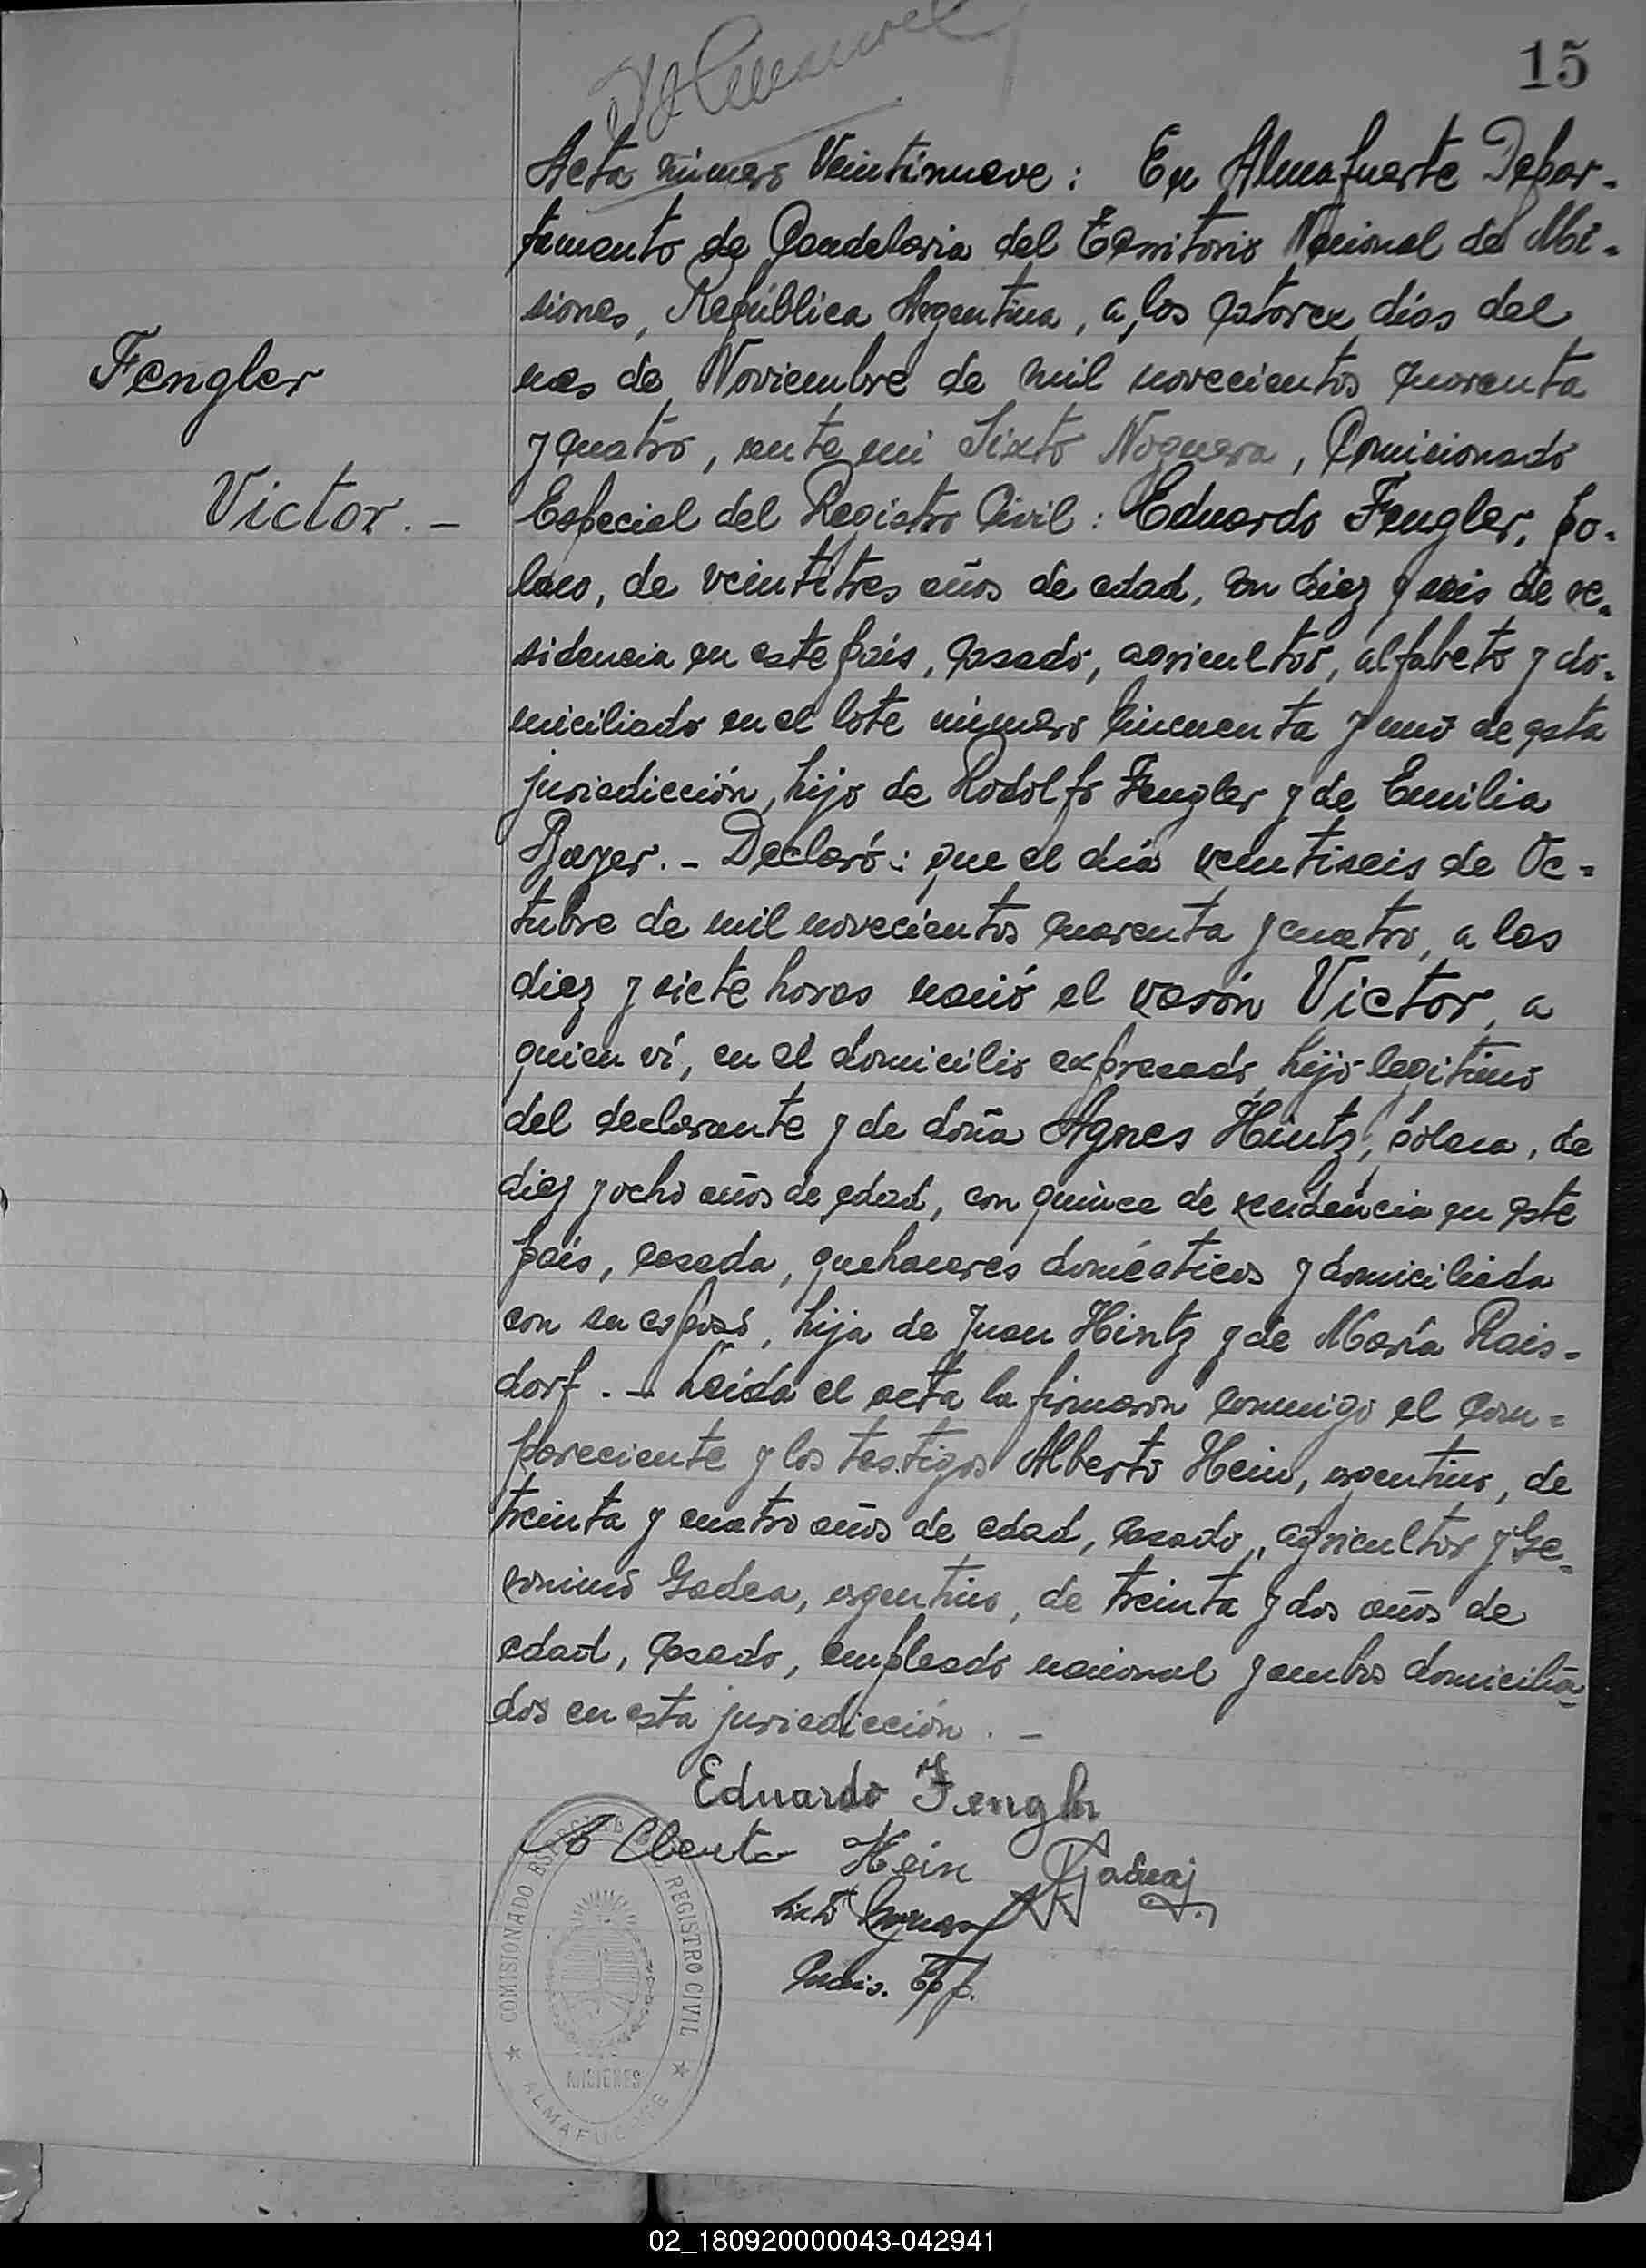 15
Acta número Veintinueve: En Almafuerte Depar-
tamento de Candelaria del Territorio Nacional de Mi-
siones, República Argentina, a los catorce días del
mes de Noviembre de mil novecientos cuarenta
y cuatro, ante mi Sixto Noguera, Comicionado
Especial del Registro Civil: Eduardo Fengler, po-
laco, de veintitres años de edad, con diez y seis de re-
sidencia en este país, casado, agricultor, alfabeto y do-
miciliado en el lote número cincuenta y uno de esta
jurisdicción, hijo de Rodolfo Fengler y de Emilia
.- Declaró: que el día veintiseis de Oc-
tubre de mil novecientos cuarenta y cuatro, a las
diez y siete horas nació el varón Victor, a
quien ví, en el domicilio expresado, hijo legitimo
del declarante y de doña Agnes Hintz, polaca, de
diez y ocho años de edad, con quince de residencia en este
país, casada, quehaceres domésticos y domiciliada
con su esposo, hija de Juan Hintz y de María Rais-
dorf.- Leida el acta la firmaron conmigo el com-
pareciente y los testigos Alberto Hein, argentino, de
treinta y cuatro años de edad, casado, agricultor y Ge-
ronimo Gadea, argentino, de treinta y dos años de
edad, casado, empleado nacional y ambos domicilia-
dos en esta jurisdicción.-
Fengler
Victor.-
Eduardo Fengler
Alberto Hein
Sixto Noguera
Comis. Esp.
COMISIONADO ESPECIAL DEL REGISTRO CIVIL
MISIONES
★ ALMAFUERTE ★
02_180920000043-042941